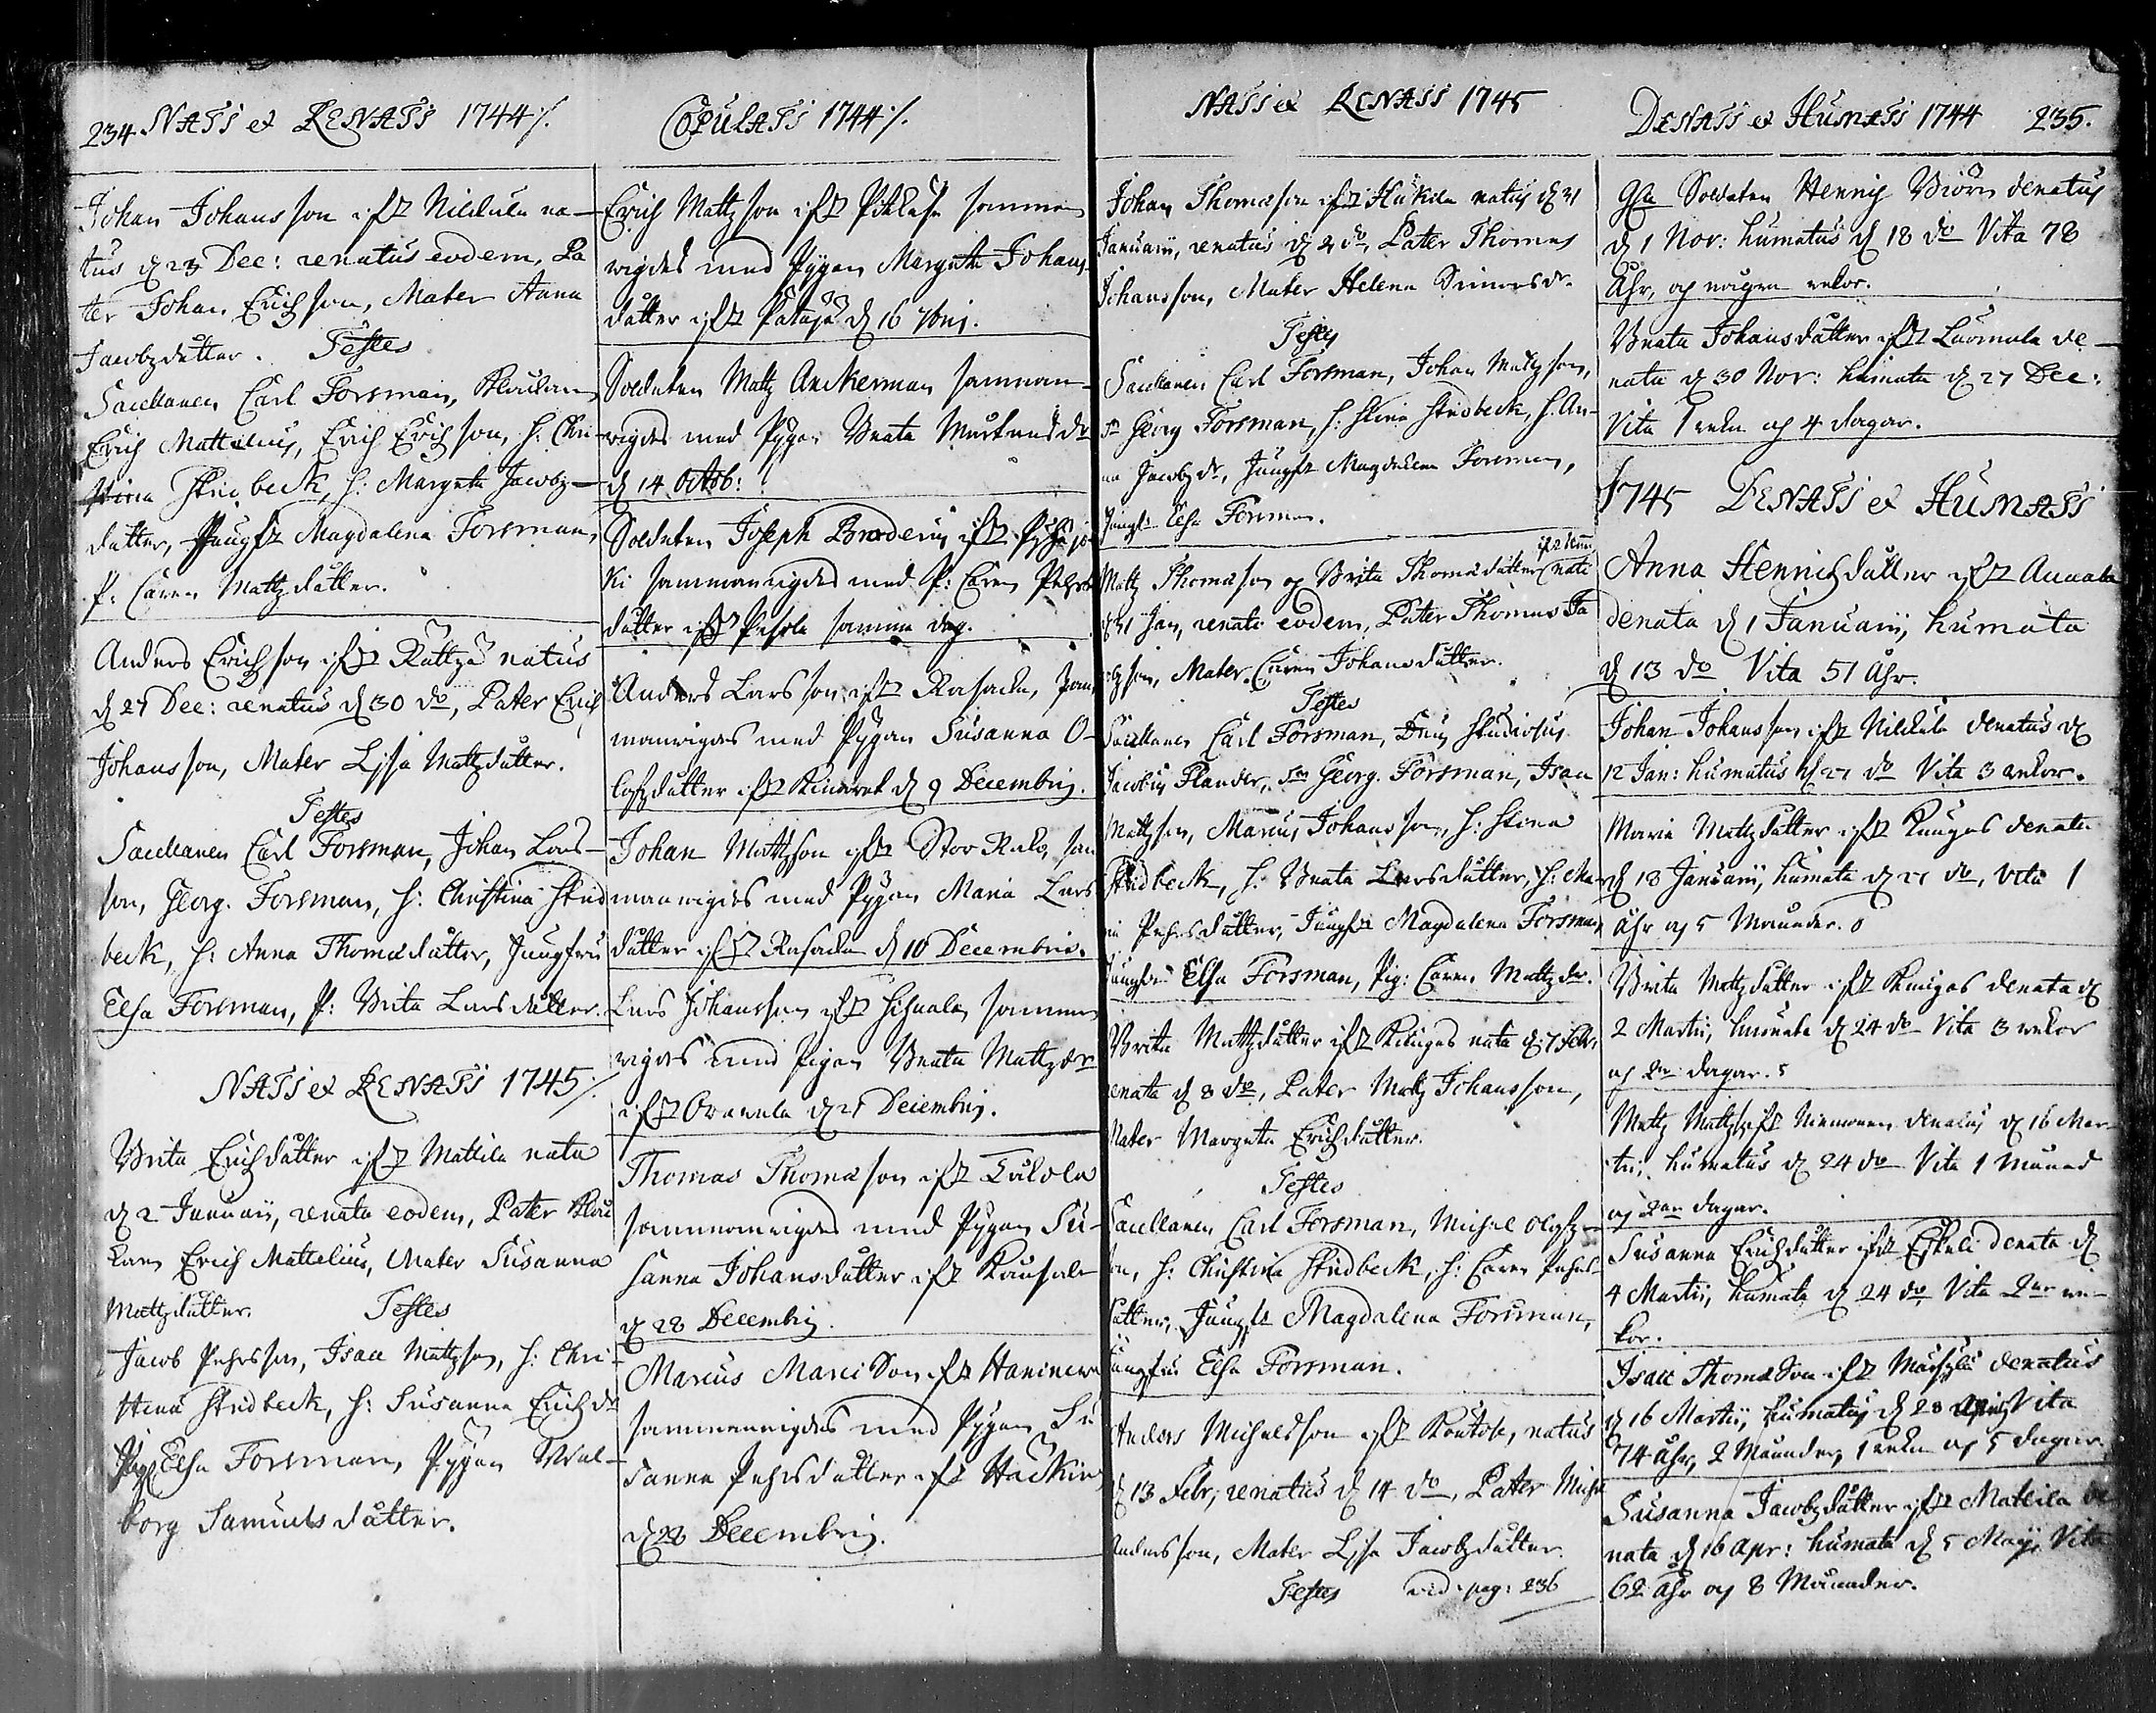 234. NATJ et RENATJ 1744 ./.
Johan Johansson ifr: Nickula na-
tus d 23 Dec: renatus eodem, Pa
ter Johan Erichson, Mater Anna
Jacobzdåtter. Testes
Sacellanen Carl Forsman, Klockaren
Erich Mattelius, Erich Erichson, h: Chri-
stina Stridbeck, h: Margeta Jacobz-
dåtter, Jungfr Magdalena Forsman,
P: Caren Mattzdåtter.
Anders Erichson ifr
natus
d 27 Dec: renatus d 30 do, Pater Erich
Johansson, Mater Lisa Mattzdåtter.
Testes
Sacellanen Carl Forsman, Johan Lars-
son, Georg. Forsman, h: Christina Strid
beck, h: Anna Thomædåtter, Jungfru
Elsa Forsman, P: Brita Larsdåtter.
NATJ et RENATJ 1745 ./.
Brita Erichdåtter ifr Mattila nata
d 2 Januarii, renata eodem, Pater Kloc
karen Erich Mattelius, Mater Susanna
Mattzdåtter. Testes
Jacob Pehrsson, Isac Mattzson, h: Chri-
stina Stridbeck, h: Susanna Erichdr
Elsa Forsman, Pygan Wal-
borg Samuelsdåtter.
COPULATJ 1744 ./.
Erich Mattzson ifr
samman
wigdes med Pygan Margeta Johans-
dåtter ifr
d 16 7bris.
Soldaten Mattz Anckerman samman-
wigdes med Pygan Beata Markusdr
d 14 Octob:
Soldaten Joseph Broderus ifr Pyhäjo
ki sammanwigdes med P: Caren Pehrs
dåtter ifr
samma dag.
Anders Larsson ifr Kasacka, sam
manwigdes med Pygan Susanna O-
lofzdåtter ifr
d 9 Decembris.
Johan Mattzson ifr Stor
sam
manwigdes med Pygan Maria Lars
dåtter ifr Kasacka d 10 Decembris.
Lars Johansson ifr
samman
wigdes med Pigan Beata Mattzdr
ifr Orawala d 21 Decembris.
Thomas Thomæson ifr
sammanwigdes med Pygan Su-
sanna Johansdåtter ifr
d 28 Decembris.
Marcus Marci Son ifr
sammanwigdes med Pygan Su
sanna Pehrsdåtter ifr
d 28 Decembris.
NATJ et RENATJ 1745
Johan Thomæson ifr
natus d 31
Januarii, renatus d 2 do, Pater Thomas
Johansson, Mater Helena Simonsdr.
Testes
Sacellanen Carl Forsman, Johan Mattzson,
Georg Forsman, h: Stina Stridbeck, h: An-
na Jacobzdr, Jungfr Magdalena Forsman,
Jungfr Elsa Forsman.
Mattz Thomæson og Brita Thomædåtter
nati
d 31 Jan, renati eodem, Pater Thomas Ja
cobzson, Mater Caren Johansdåtter.
Testes
Sacellanen Carl Forsman, Studiosus
Jacobus Flander, Georg. Forsman, Isac
Mattzson, Marcus Johansson, h: Stina
Stridbeck, h: Beata Larsdåtter, h: Ma-
ria Pehrsdåtter, Jungfr Magdalena Forsman,
Jungfru Elsa Forsman, Pig: Caren Mattzdr.
Brita Mattzdåtter ifr Kangas nata d 7 Febr,
renata d 8 do, Pater Mattz Johansson,
Mater Margeta Erichdåtter.
Testes
Sacellanen Carl Forsman, Michel Olofz-
son, h: Christina Stridbeck, h: Caren Pehrs-
dåtter, Jungfr Magdalena Forsman,
Jungfru Elsa Forsman.
Anders Michelsson ifr
natus
d 13 Febr, renatus d 14 do, Pater Michel
Andersson, Mater Lisa Jacobzdåtter.
Testes vid: pag: 236
DENATJ et HUMATJ 1744 235.
Soldaten Henrich Biörn denatus
d 1 Nov: humatus d 18 do Vita 78
Åhr, og några wekor.
Beata Johansdåtter ifr Luomala de-
nata d 30 Nov: humata d 27 Dec:
Vita 1 weka og 4 dagar.
1745 DENATJ et HUMATJ
Anna Henrichdåtter ifr Annala
denata d 1 Januarii, humata
d 13 do Vita 51 Åhr.
Johan Johansson ifr Nickula denatus d
12 Jan: humatus d 27 do Vita 3 wekor.
Maria Mattzdåtter ifr Kangas denata
d 18 Januarii, humata d 27 do, Vita 1
åhr og 5 Månader.
Brita Mattzdåtter ifr Kangas denata d
2 Martii, humata d 24 do Vita 3 wekor
og 2ne dagar.
Mattz Mattzs ifr
denatus d 16 Mar-
tii, humatus d 24 do Vita 1 månad
og 2ne dagar.
Susanna Erichdåtter ifr
denata d
4 Martii, humata d 24 do Vita 2ne we-
kor.
Isac Thomæson ifr
denatus
d 16 Martii, humatus d 28 Aprilis Vita
74 åhr, 2 Månader, 1 weka og 5 dagar.
Susanna Jacobzdåtter ifr Mattila de
nata d 16 Apr: humata d 5 Maji, Vita
62 åhr og 8 Månader.